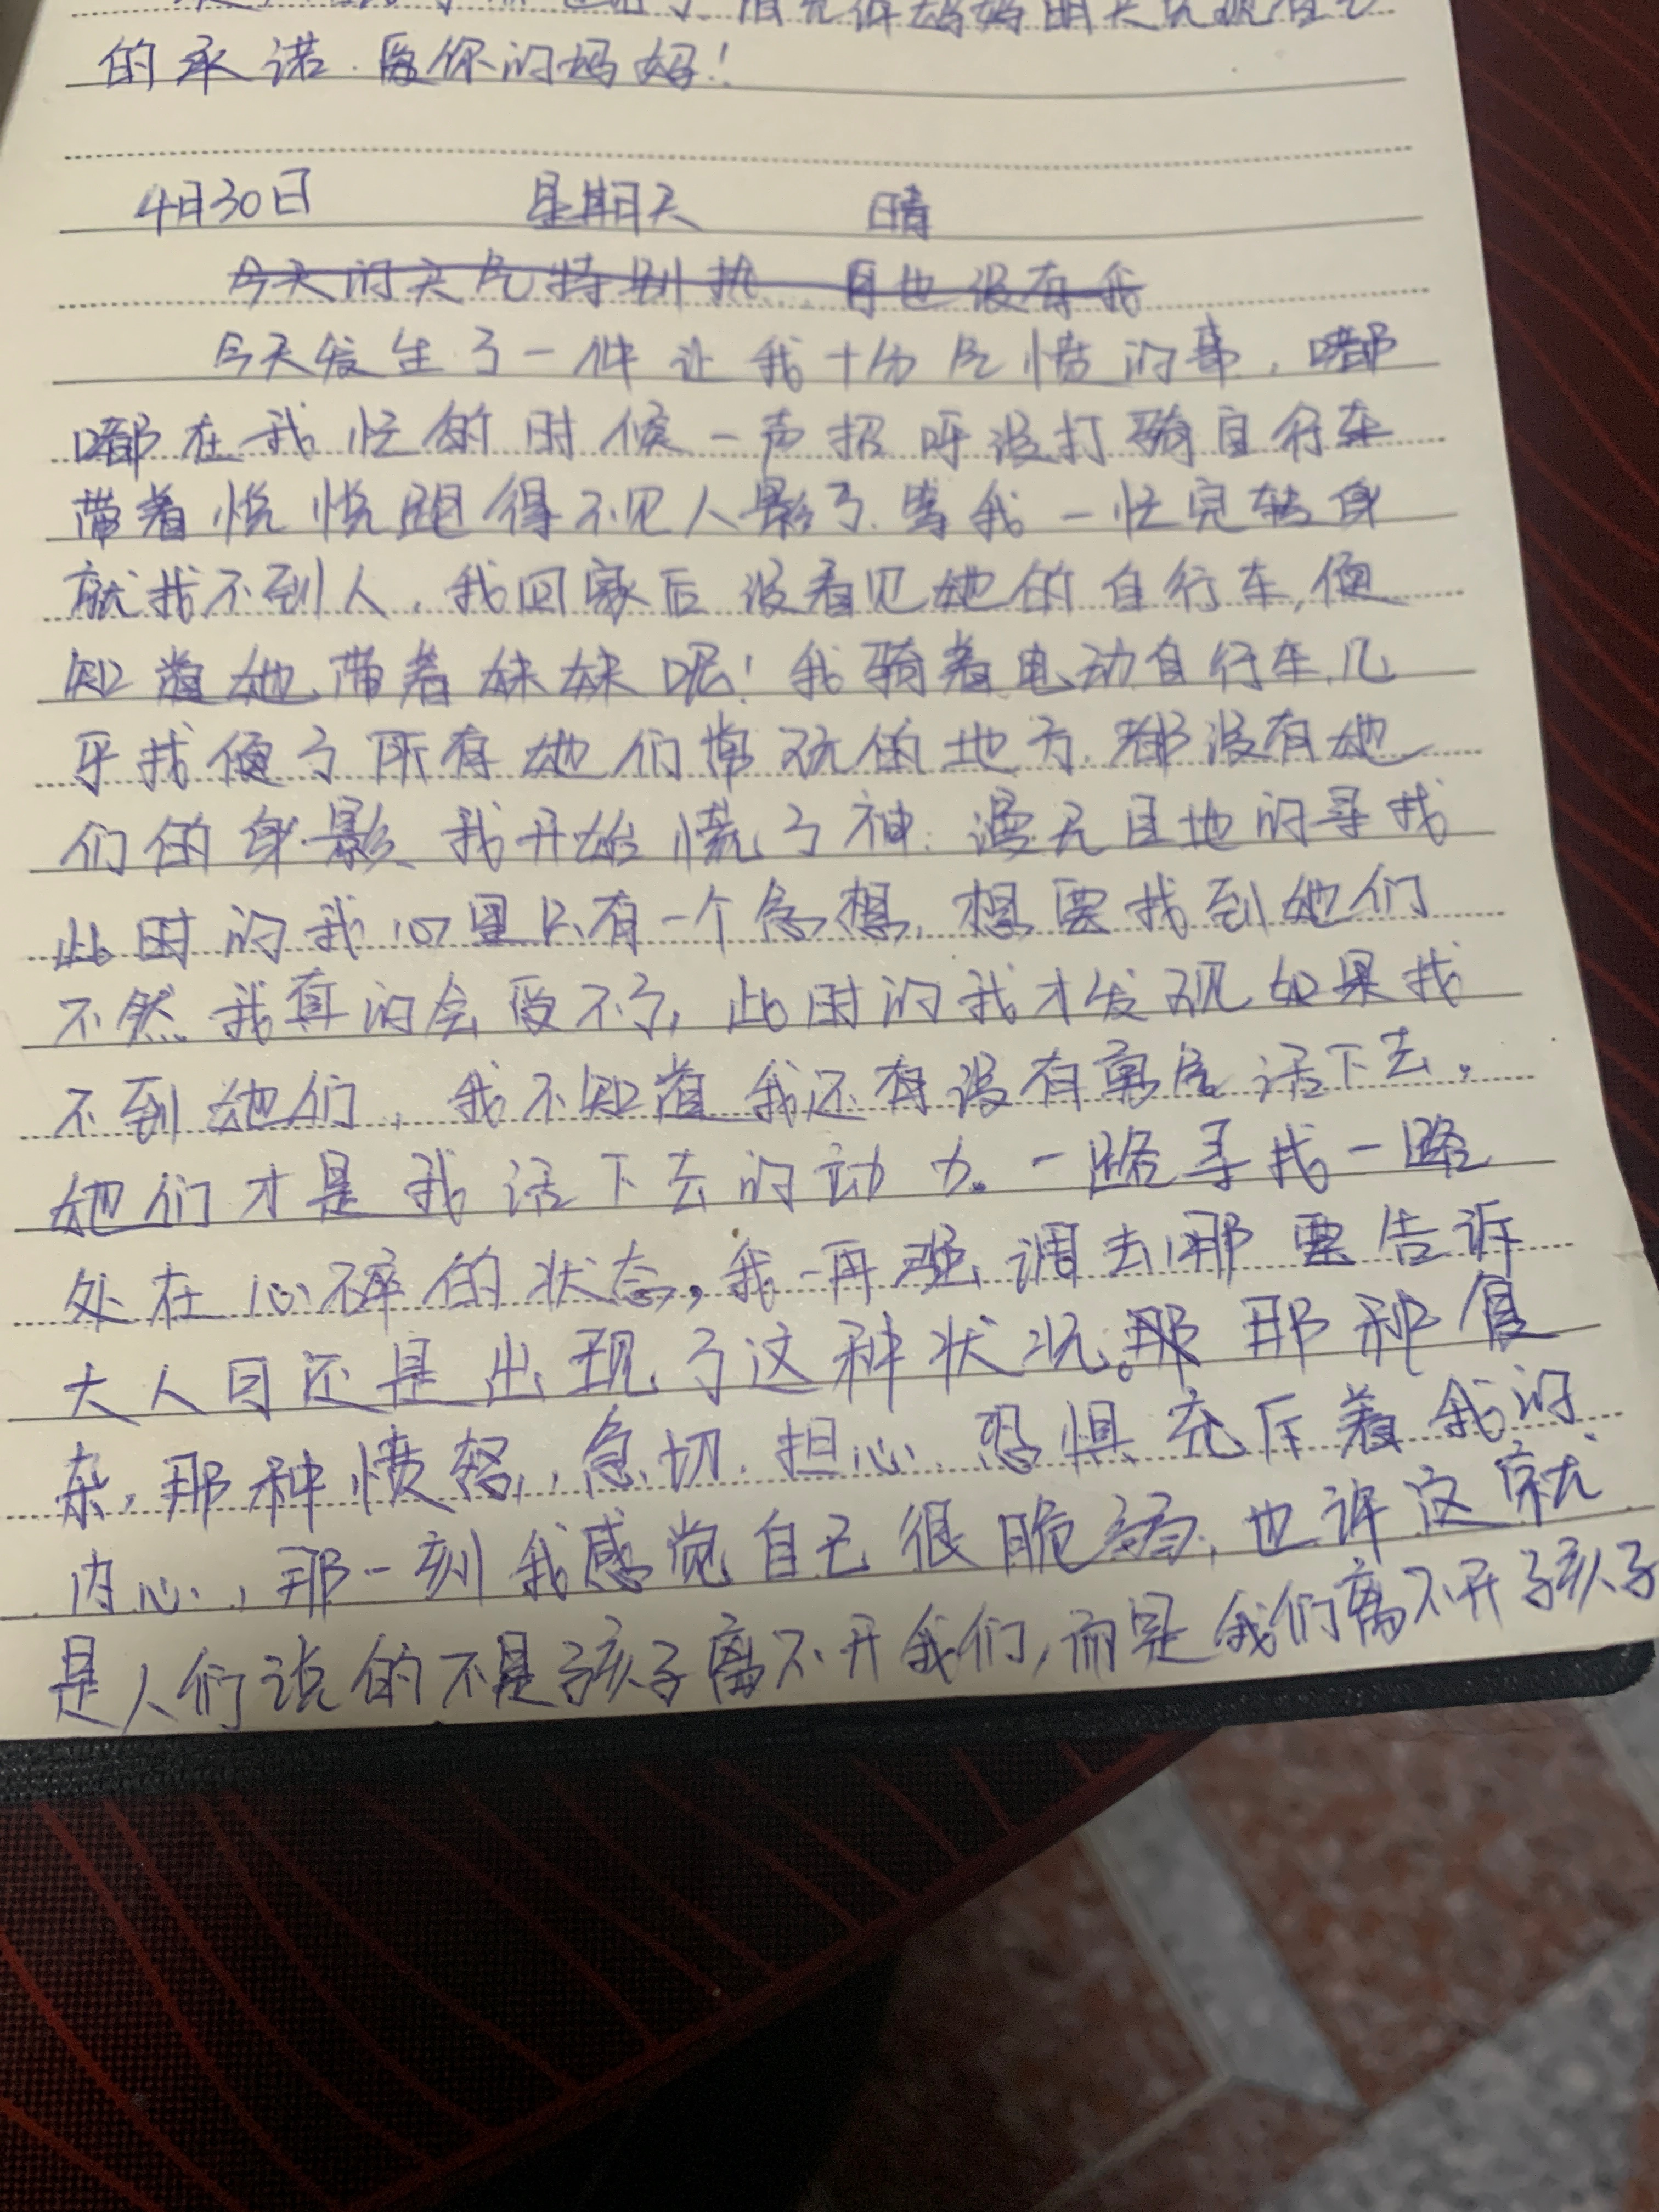 的承诺.爱你的妈妈!
4月30日 星期天 晴
今天的天气特别热 目也没有我
今天发生了一件让我十分气愤的事,嘟
嘟在我忙的时候一声招呼没打骑自行车
带着悦悦跑得不见人影了.当我一忙完转身
就找不到人,我回家后没看见她的自行车,便
知道她带着妹妹呢!我骑着电动自行车几
乎找便了所有她们常玩的地方.都没有她
们的身影.我开始慌了神.漫无目地的寻找
此时的我心里只有一个念想,想要找到她们
不然我真的会受不了,此时的我才发现如果找
不到她们,我不知道我还有没有勇气活下去,
她们才是我活下去的动力。一路寻找一路
处在心碎的状态,我一再强调去哪要告诉
大人目还是出现了这种状况。那 那种复
杂,那种愤怒,急切.担心.恐惧充斥着我的
内心,那一刻我感觉自己很脆弱,也许这就
是人们说的不是孩子离不开我们,而是我们离不开孩子